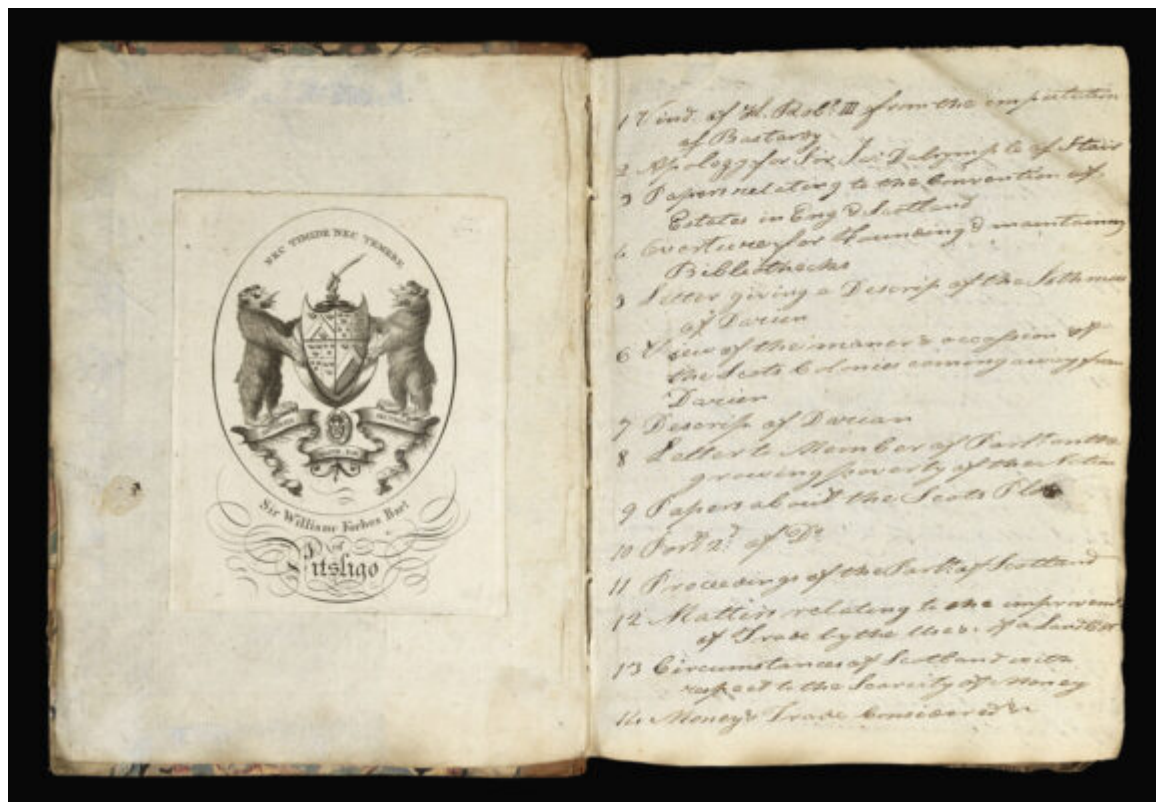 NEC TIMIDE NEC TEMERE
Sir William Forbes Bart
of
Pitsligo
1 Vind. of K. Robt. III from the imputation
of Bastardy
2 Apology for Sir Ja: Dalrymple of Stair
3 Papers relating to the Convention of
Estates in Eng & Scotland
4 Overtures for Founding & maintaining
Bibliothecks
5 Letter giving a Descrip of the Isthmus
of Darien
6 View of the maner & occassion of
the Scots Colonies coming away from
Darien
7 Descrip of Darian
8 Letter to Member of Parlt. on the
growing poverty of the Nation
9 Papers about the Scots Plot
10 Part 2d. of Do.
11 Proceedings of the Parlt. of Scotland
12 Matters relating to the improvemt.
of Trade by the
13 Circumstances of Scotland with
respect to the Scarcity of Money
14 Money & Trade Considered &c